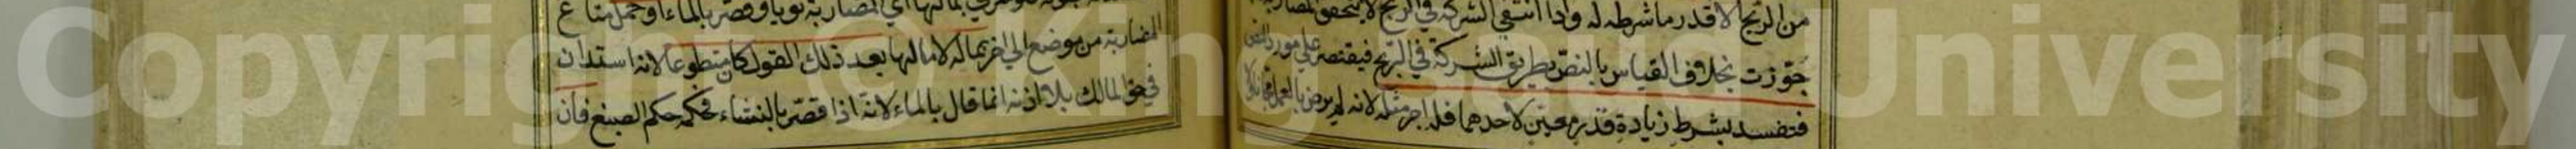 من الربح الا قدر ما شرط له واذا انتفى الشركة في الربح لا يتحقق المضاربة
جوزت بخلاف القياس بالنص بطريق الشركة في الربح فيقتصر على مورد النص
فتفسد بشرط زيادة قدر معين لاحدهما فله اجر مثله لانه لم يرض بالعمل مجانا
بمالها اي المضاربة ثوبا وقصر بالماء او حمل متاع
المضاربة من موضع الى اخر بماله لا مالها بعد ذلك القول كان متطوعا لانه استدان
في حق المالك بلا اذنه انما قال بالماء لانه اذا قصر بالنشاء فحكمه حكم الصبغ فان
Copyright © King Saud University